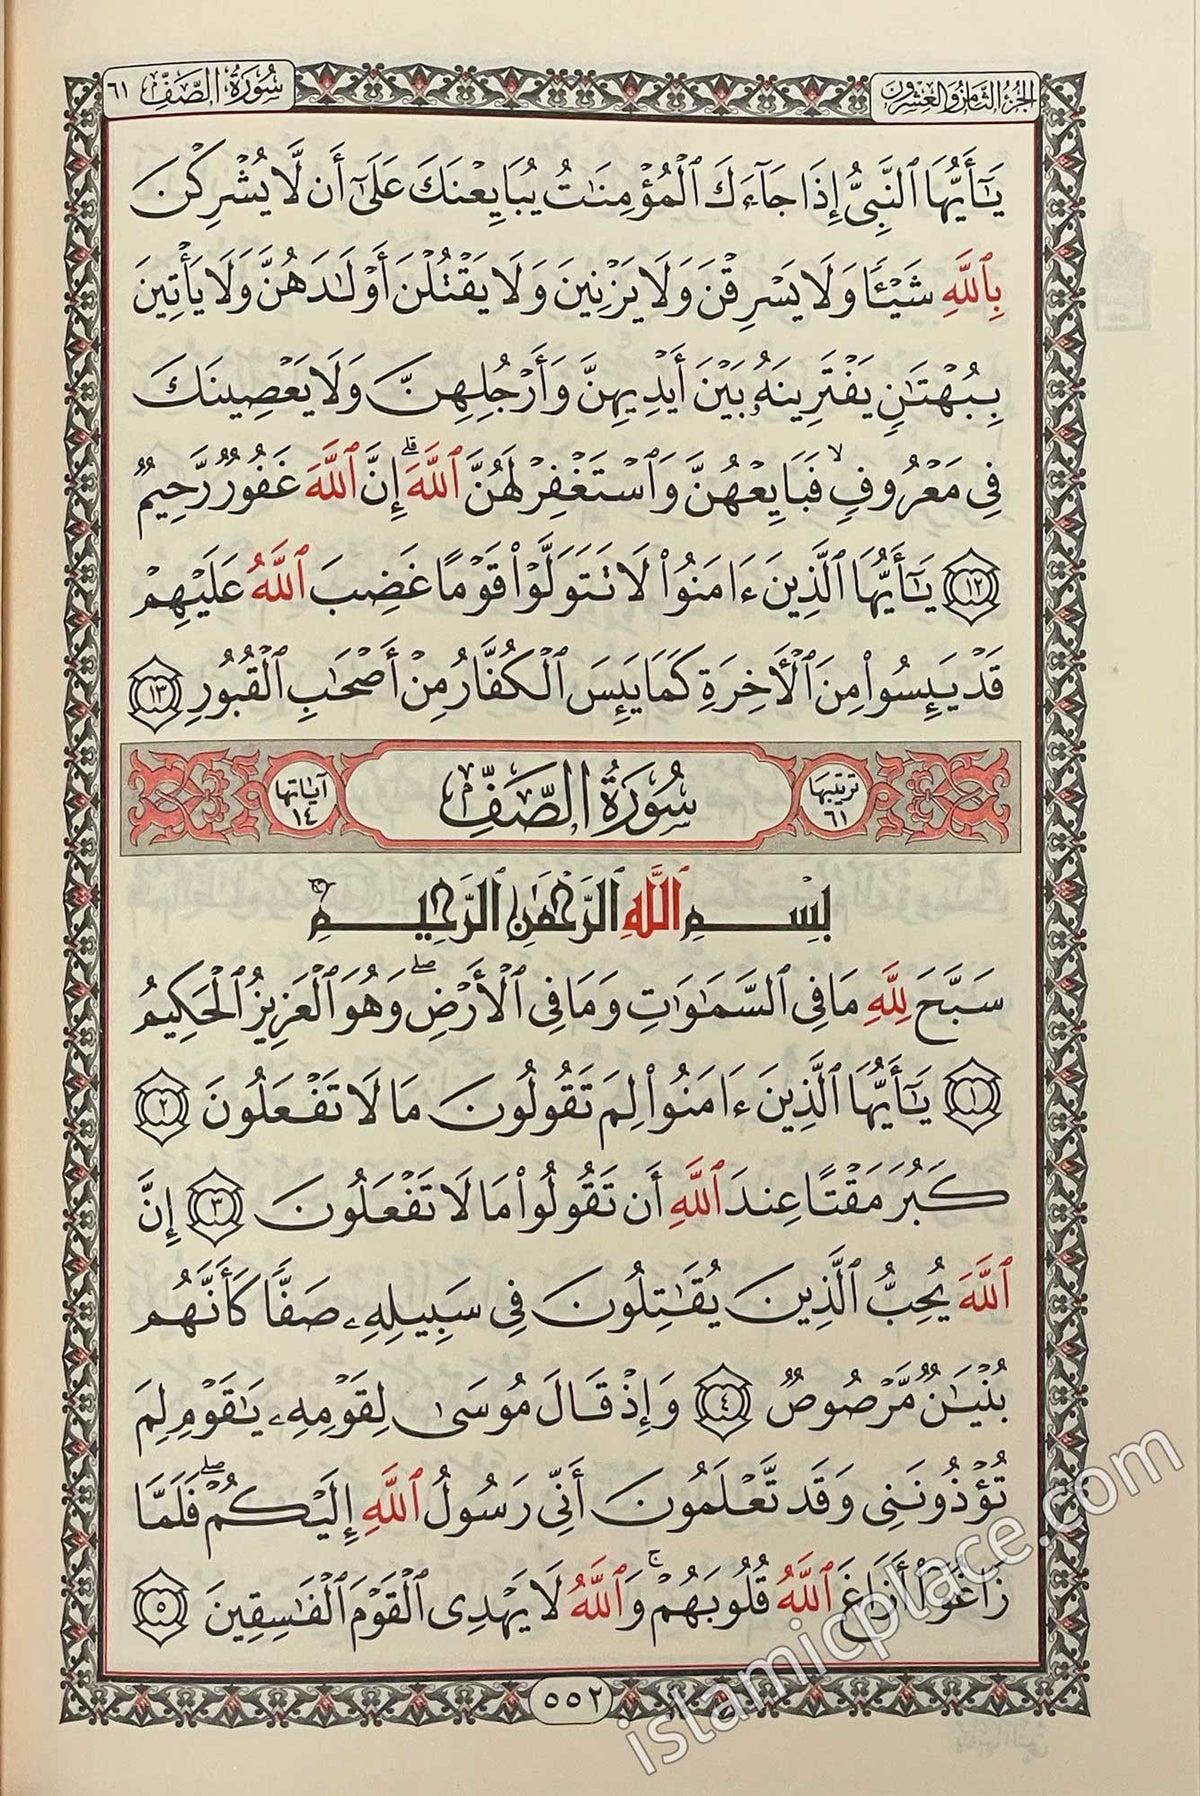 الجزء الثامن والعشرون
سُورَةُ الصَّفِّ ٦١
يَـٰٓأَيُّهَا ٱلنَّبِىُّ إِذَا جَآءَكَ ٱلْمُؤْمِنَـٰتُ يُبَايِعْنَكَ عَلَىٰٓ أَن لَّا يُشْرِكْنَ
بِٱللَّهِ شَيْـًٔا وَلَا يَسْرِقْنَ وَلَا يَزْنِينَ وَلَا يَقْتُلْنَ أَوْلَـٰدَهُنَّ وَلَا يَأْتِينَ
بِبُهْتَـٰنٍ يَفْتَرِينَهُۥ بَيْنَ أَيْدِيهِنَّ وَأَرْجُلِهِنَّ وَلَا يَعْصِينَكَ
فِى مَعْرُوفٍ ۙ فَبَايِعْهُنَّ وَٱسْتَغْفِرْ لَهُنَّ ٱللَّهَ ۖ إِنَّ ٱللَّهَ غَفُورٌ رَّحِيمٌ
١٢ يَـٰٓأَيُّهَا ٱلَّذِينَ ءَامَنُوا۟ لَا تَتَوَلَّوْا۟ قَوْمًا غَضِبَ ٱللَّهُ عَلَيْهِمْ
قَدْ يَئِسُوا۟ مِنَ ٱلْـَٔاخِرَةِ كَمَا يَئِسَ ٱلْكُفَّارُ مِنْ أَصْحَـٰبِ ٱلْقُبُورِ ١٣
ترتيبها ٦١
سُورَةُ الصَّفِّ
آياتها ١٤
بِسْمِ ٱللَّهِ ٱلرَّحْمَـٰنِ ٱلرَّحِيمِ
سَبَّحَ لِلَّهِ مَا فِى ٱلسَّمَـٰوَٰتِ وَمَا فِى ٱلْأَرْضِ ۖ وَهُوَ ٱلْعَزِيزُ ٱلْحَكِيمُ
١ يَـٰٓأَيُّهَا ٱلَّذِينَ ءَامَنُوا۟ لِمَ تَقُولُونَ مَا لَا تَفْعَلُونَ ٢
كَبُرَ مَقْتًا عِندَ ٱللَّهِ أَن تَقُولُوا۟ مَا لَا تَفْعَلُونَ ٣ إِنَّ
ٱللَّهَ يُحِبُّ ٱلَّذِينَ يُقَـٰتِلُونَ فِى سَبِيلِهِۦ صَفًّا كَأَنَّهُم
بُنْيَـٰنٌ مَّرْصُوصٌ ٤ وَإِذْ قَالَ مُوسَىٰ لِقَوْمِهِۦ يَـٰقَوْمِ لِمَ
تُؤْذُونَنِى وَقَد تَّعْلَمُونَ أَنِّى رَسُولُ ٱللَّهِ إِلَيْكُمْ ۖ فَلَمَّا
زَاغُوٓا۟ أَزَاغَ ٱللَّهُ قُلُوبَهُمْ ۚ وَٱللَّهُ لَا يَهْدِى ٱلْقَوْمَ ٱلْفَـٰسِقِينَ ٥
٥٥٢
islamicplace.com